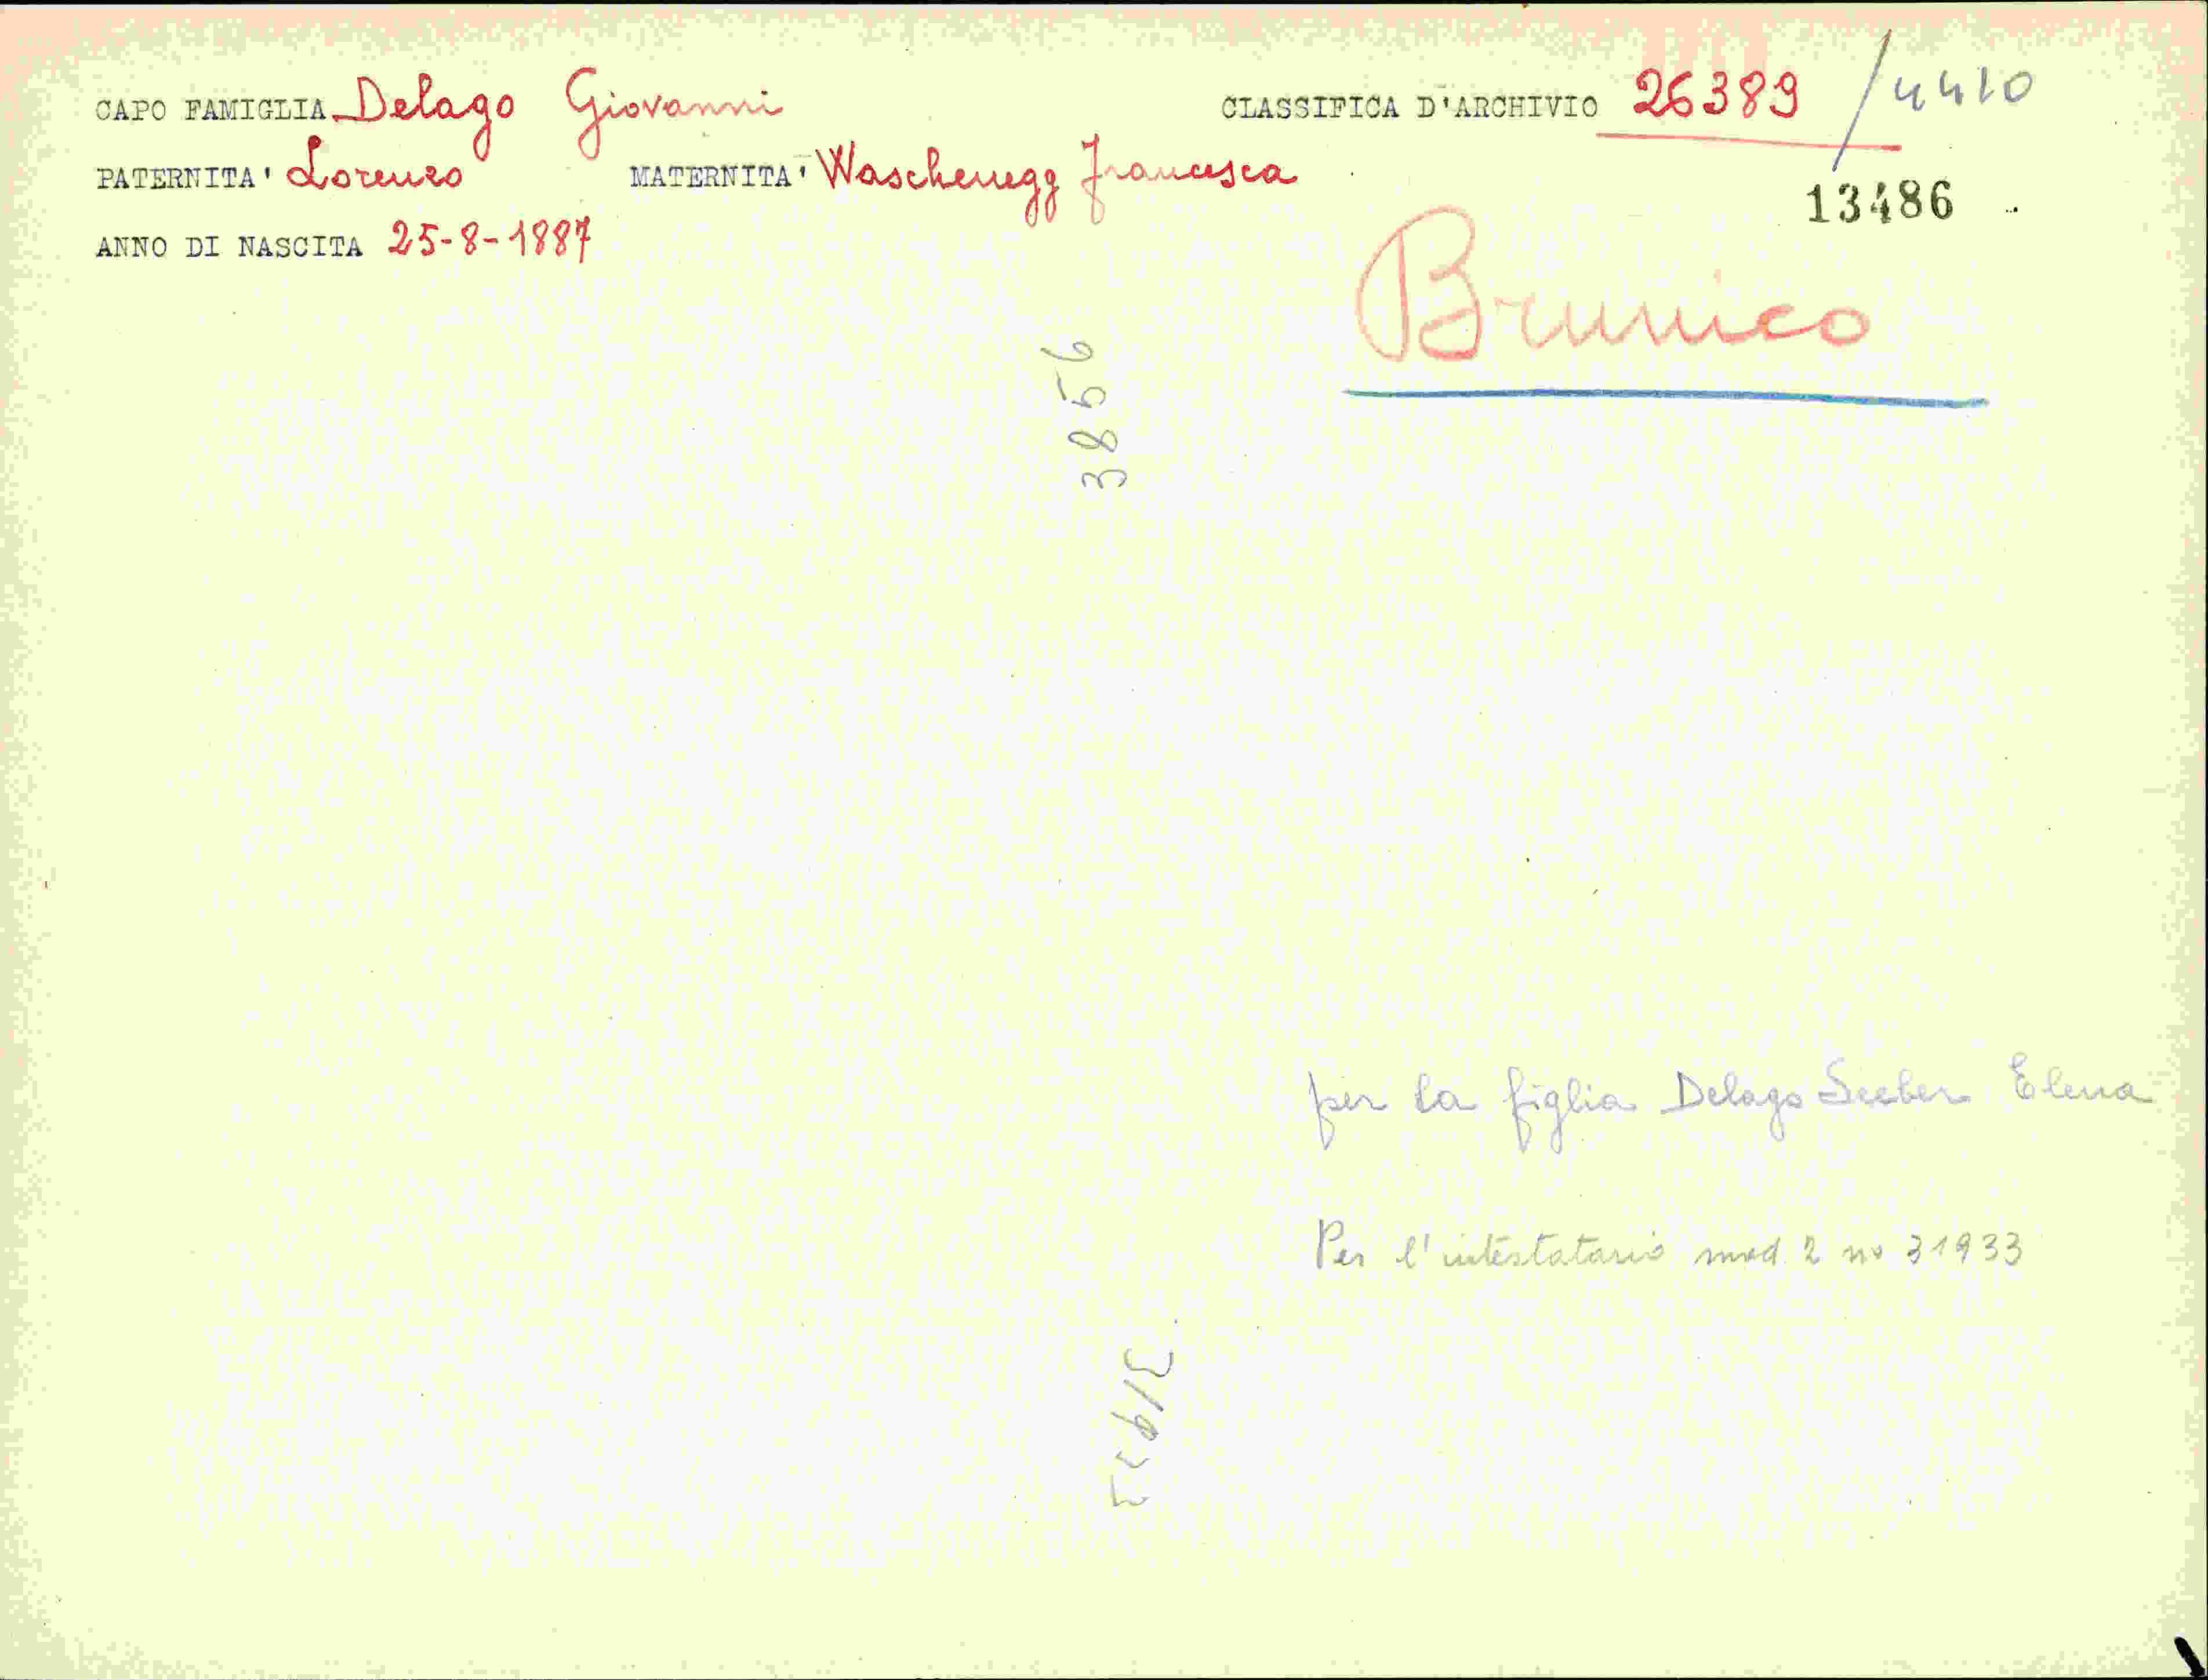 CAPO FAMIGLIA Delago Giovanni CLASSIFICA D'ARCHIVIO 26389 / 4410
PATERNITA' Lorenzo MATERNITA' Waschenegg Francesca
13486
ANNO DI NASCITA 25-8-1887
Brunico
3856
per la figlia Delago Seeber Elena
Per l'intestatario mod 2 no 31933
31933